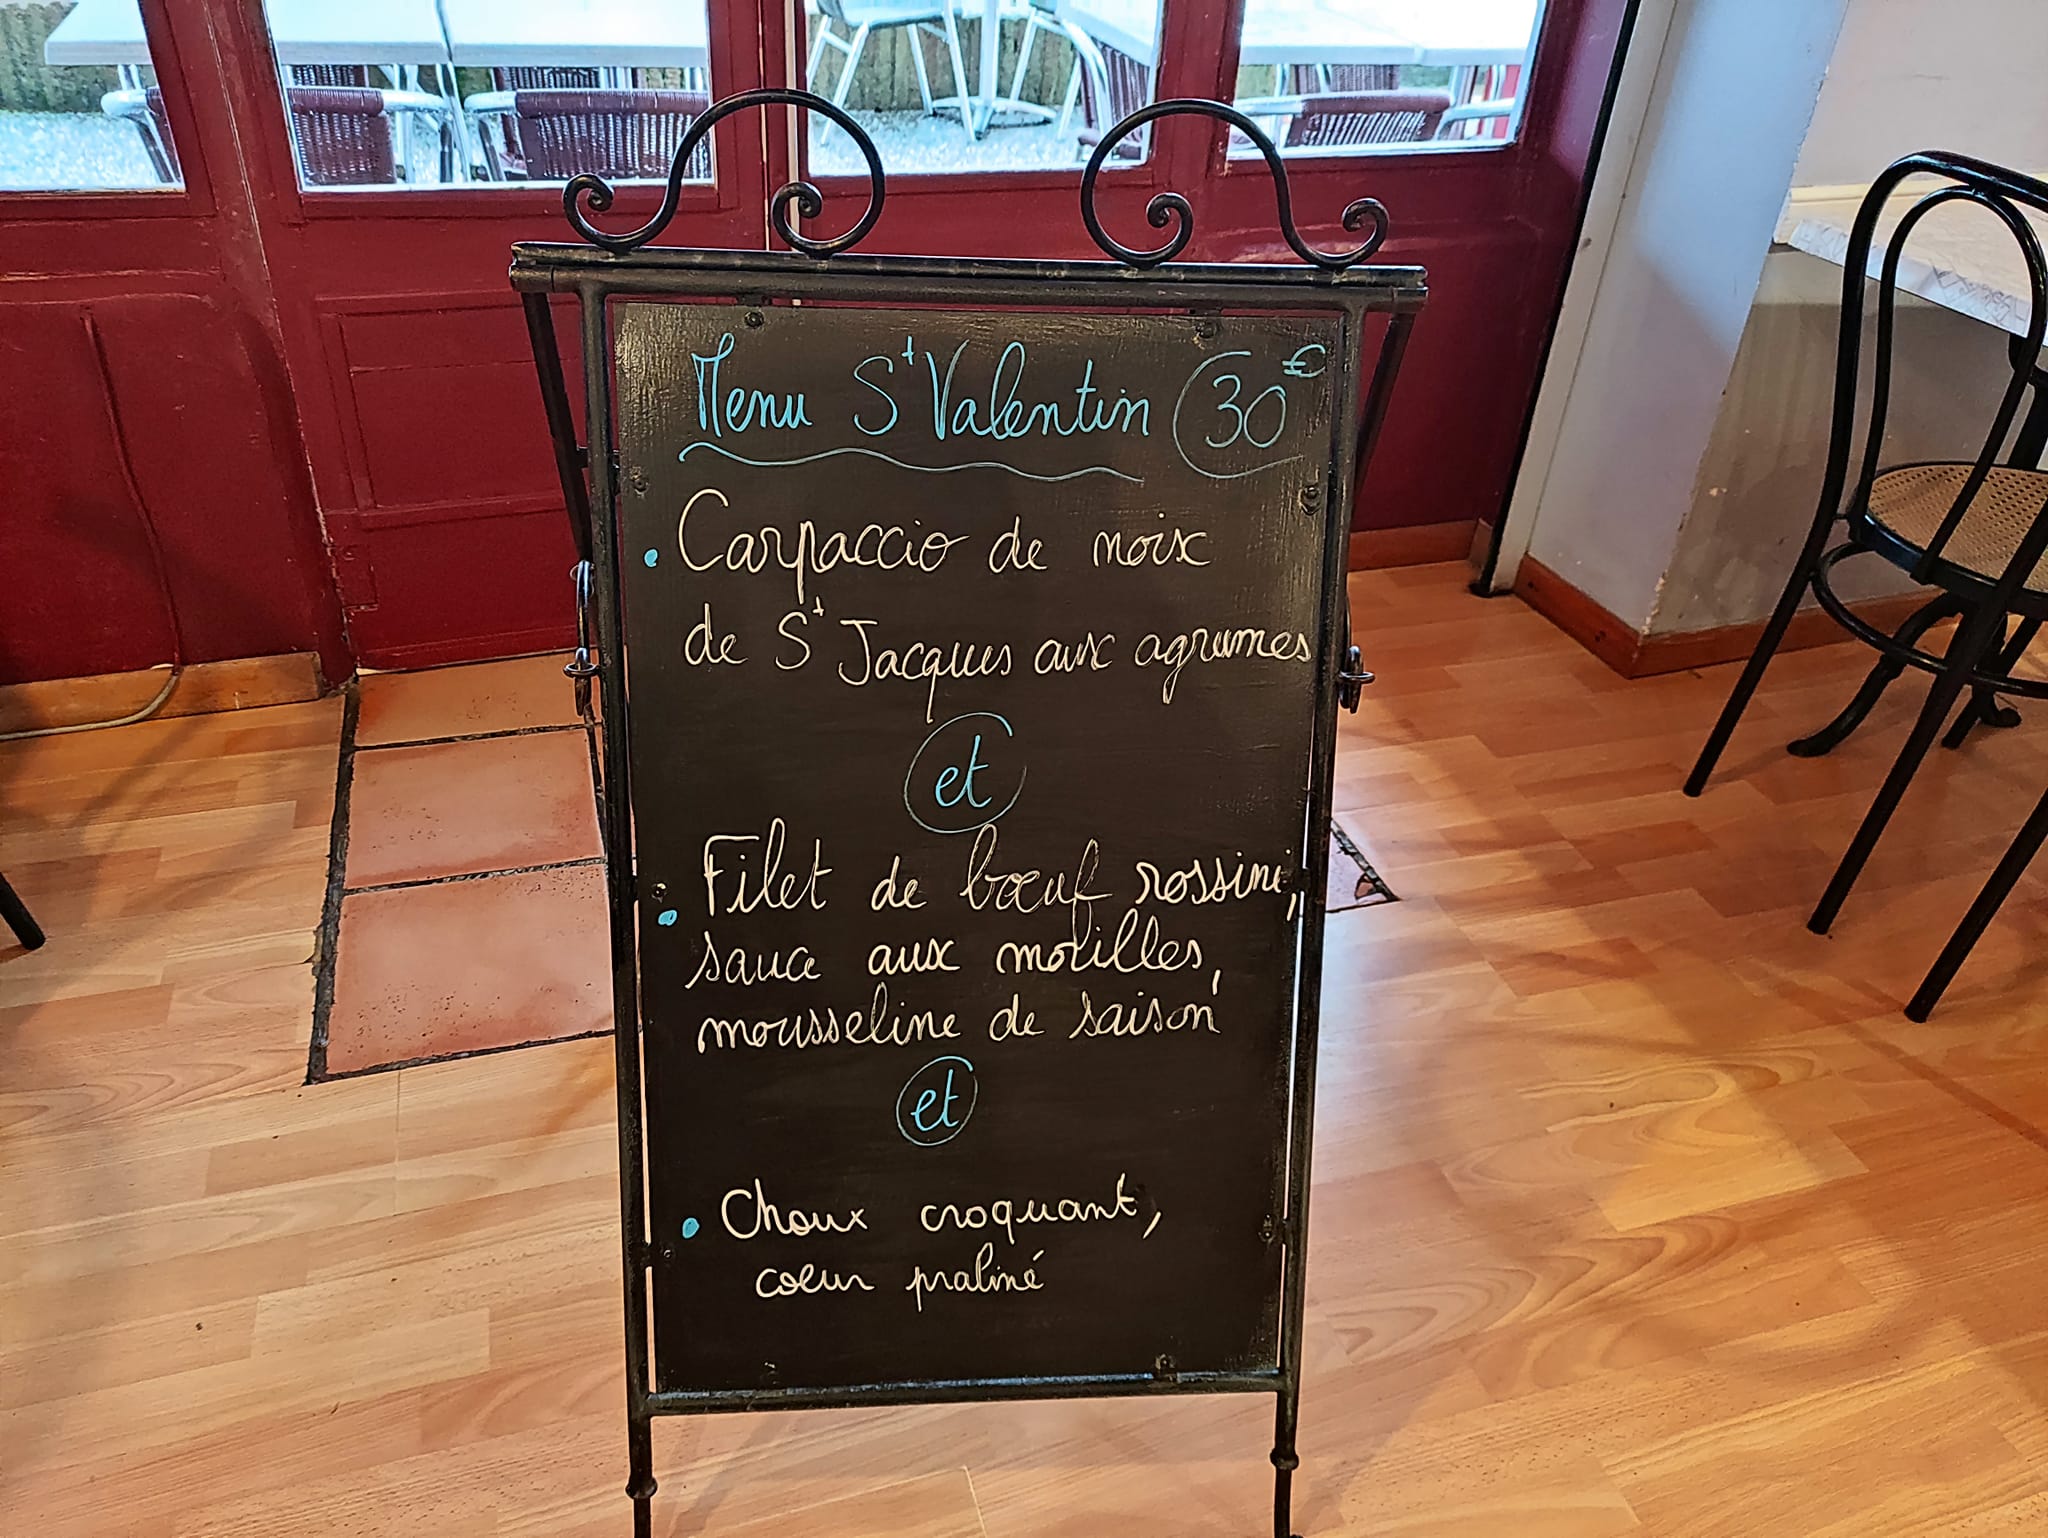 Menu St Valentin 30€
• Carpaccio de noix
de St Jacques aux agrumes
et
• Filet de bœuf rossini,
sauce aux morilles,
mousseline de saison
et
• Choux croquant,
cœur praliné